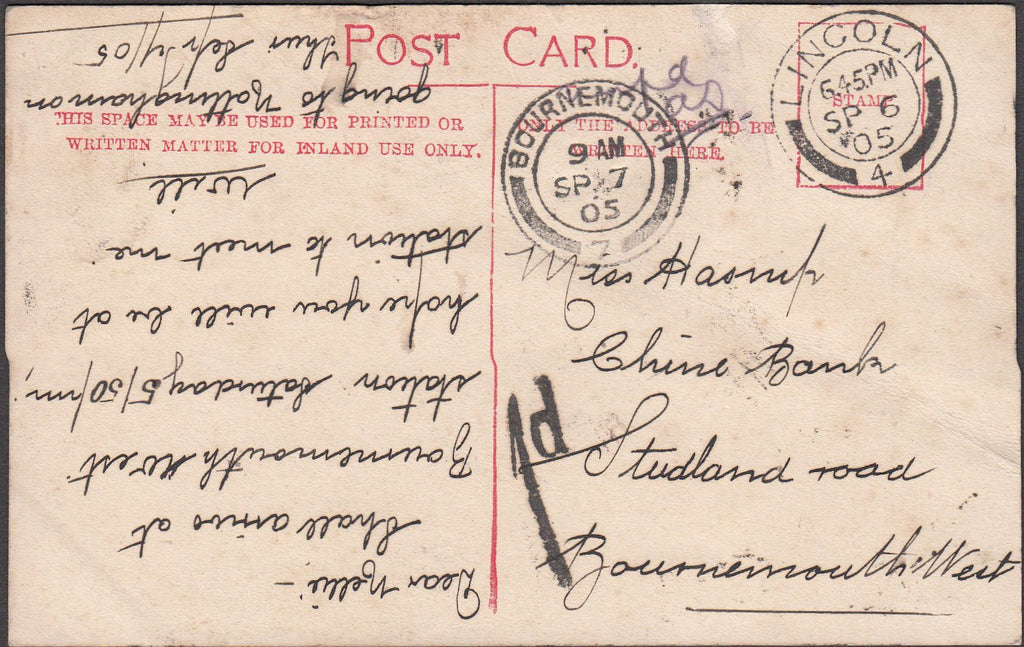 POST CARD.
THIS SPACE MAY BE USED FOR PRINTED OR
WRITTEN MATTER FOR INLAND USE ONLY.
ONLY THE ADDRESS TO BE
WRITTEN HERE.
STAMP
LINCOLN
6.45PM
SP 6
05
4
BOURNEMOUTH
9 AM
SP 7
05
7
1d
Miss Hasnip
Chine Bank
Studland road
Bournemouth West
1d
Dear Nellie -
Shall arrive at
Bournemouth West
station Saturday 5/50/pm,
hope you will be at
station to meet me
Will
going to Nottingham on
Thur Sep 7/05